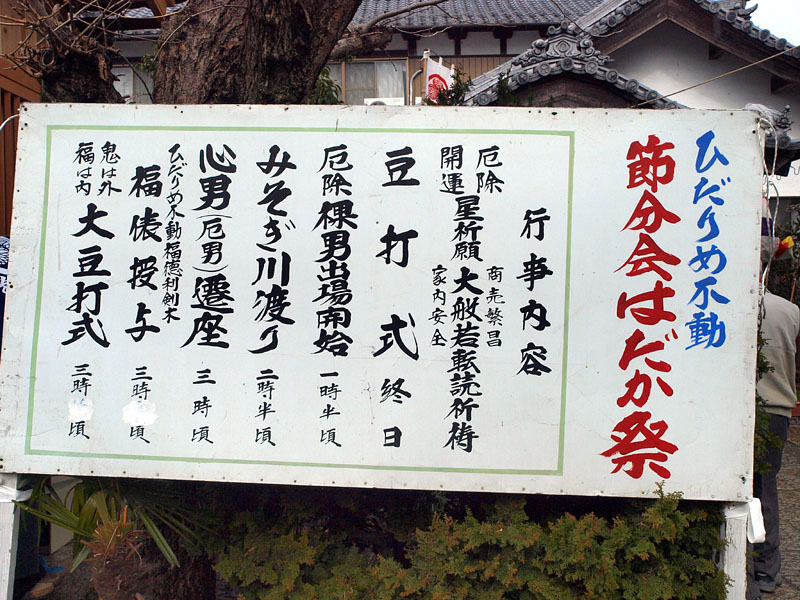 ひだりめ不動
節分会はだか祭
行事内容
厄除
開運
星祈願
商売繁昌
家内安全
大般若転読祈祷
豆打式 終日
厄除裸男出場開始 一時半頃
みそぎ川渡り 二時半頃
心男(厄男)遷座 三時頃
ひだりめ不動福徳利剣木
福俵授与 三時 頃
鬼は外
福は内
大豆打式 三時 頃